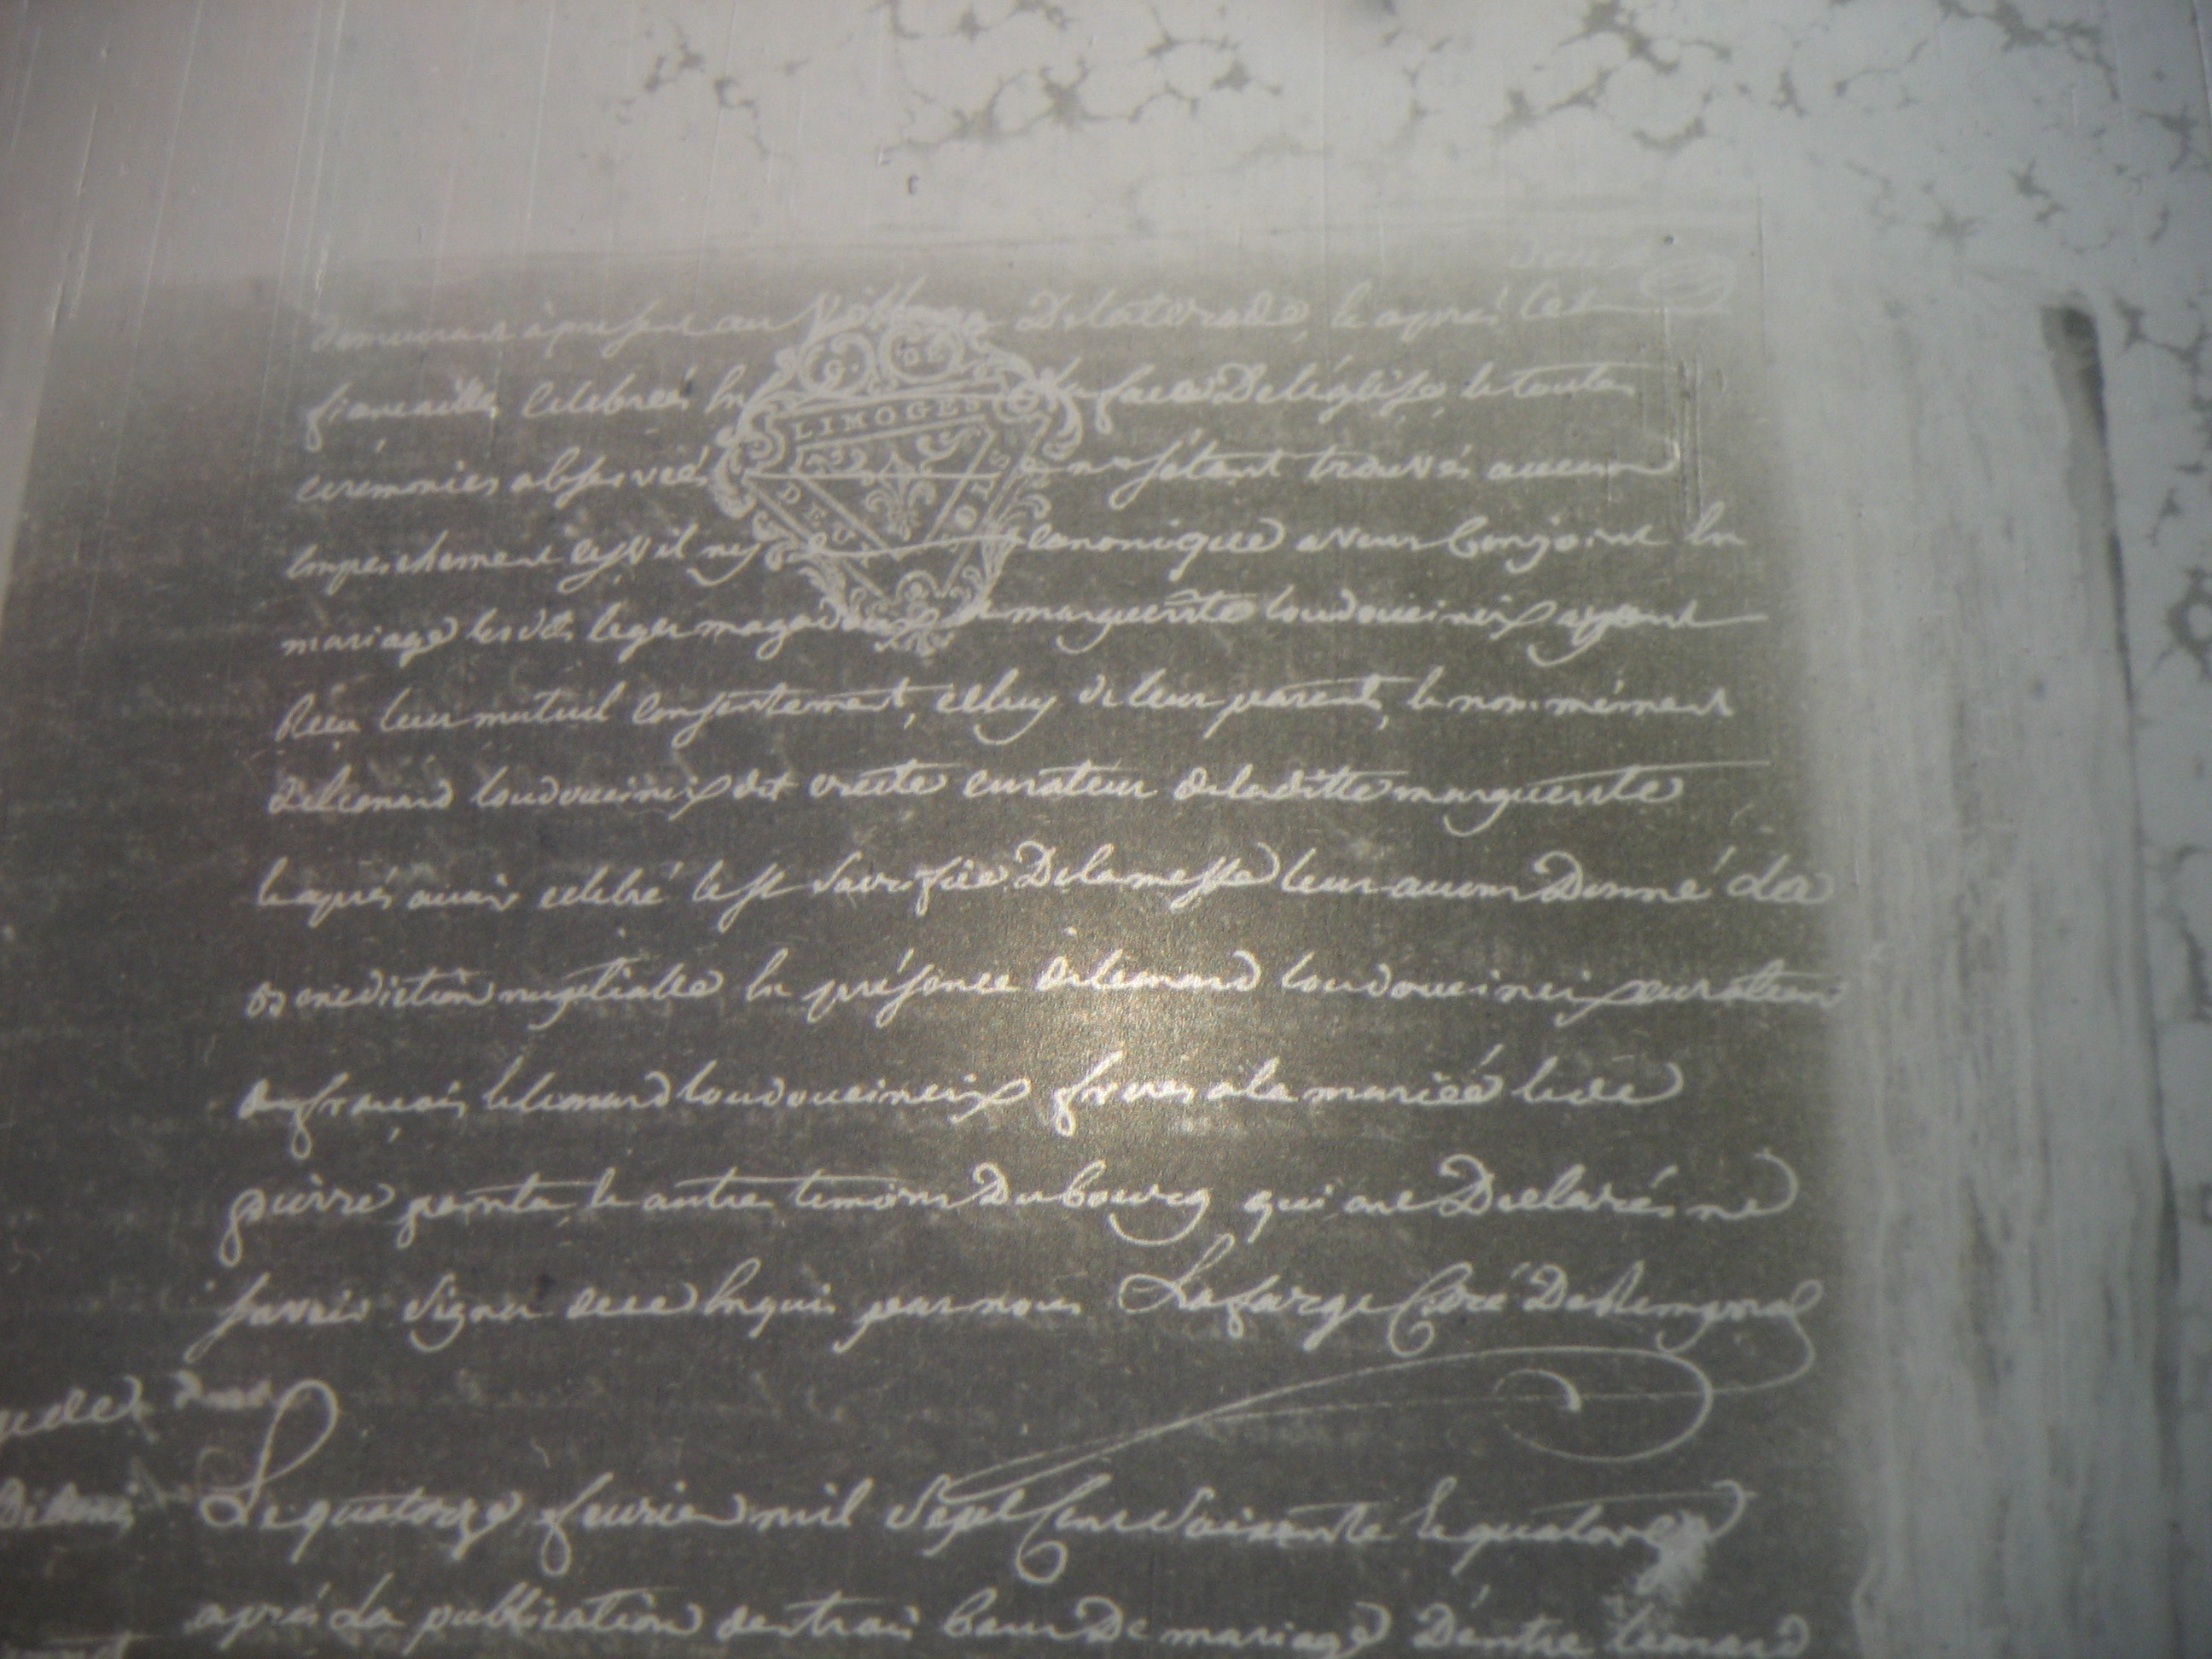 demeurant à present au village Delatorade, le après les
fiancailles célébrées en face De léglise, le toutes
G. DE
LIMOGES
ceremonies observées ne sétant trouvés aucun
DEUX SOLS
empeschement civil ny canonique avons Conjoint en
mariage lesdits leger magad marguerite loudoueineix ayant
Reçu leur mutuel consentement, celuy de leur parents, le nommément
de leonard loudoueineix dit curateur deladitte marguerite
le après avoir celebré le st Sacrifice Delamesse leur avons Donné La
Benediction nuptialle en présence de leonard loudoueineix curateur
de françois le leonard loudoueineix freres a la mariée
pierre le autre temoins Dubourg qui ont Declarés ne
savoir Signer de ce Enquis par nous Lafarge Curé De
Le quatorze fevrier mil Sept Cent Soixante le quatorze
après La publication des trois bans De mariage D'entre leonard